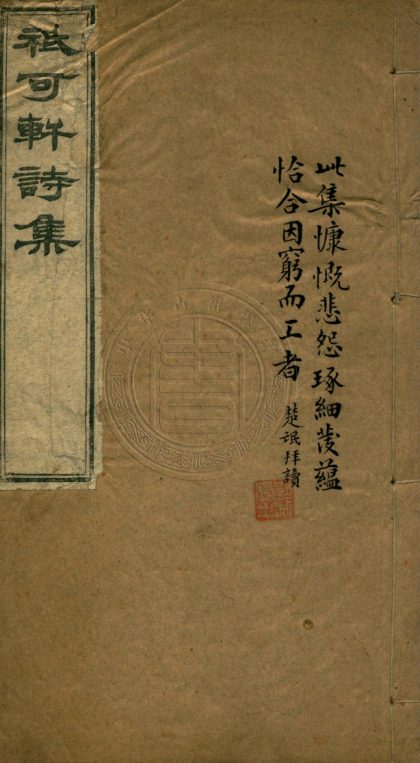 祇可軒詩集
此集慷慨悲怨琢細發蘊
恰合因窮而工者
楚氓拜讀